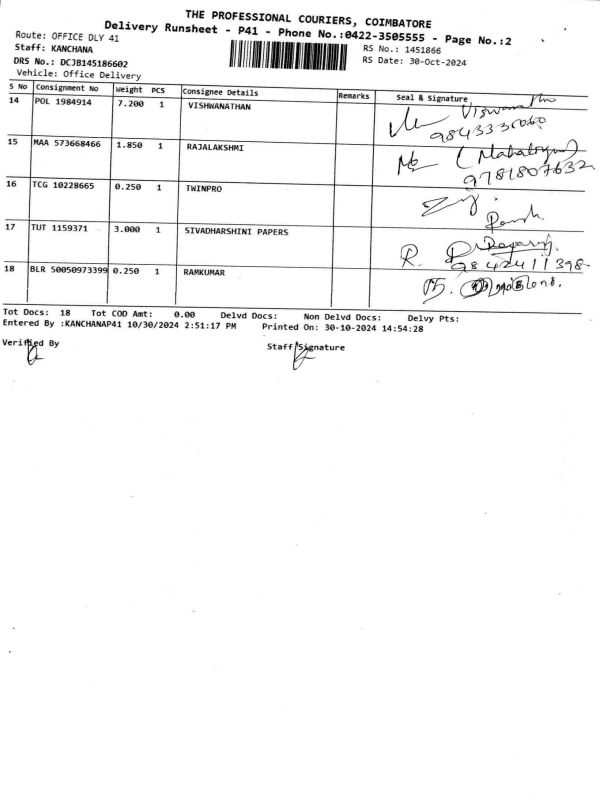 THE PROFESSIONAL COURIERS, COIMBATORE
Delivery Runsheet - P41 - Phone No.:0422-3505555 - Page No.:2
Route: OFFICE DLY 41
RS No.: 1451866
Staff: KANCHANA
RS Date: 30-Oct-2024
DRS No.: DCJB145186602
Vehicle: Office Delivery
S No Consignment No Weight PCS Consignee Details Remarks Seal & Signature
14 POL 1984914 7.200 1 VISHWANATHAN
15 MAA 573668466 1.850 1 RAJALAKSHMI
9781807632
16 TCG 10228665 0.250 1 TWINPRO
17 TUT 1159371 3.000 1 SIVADHARSHINI PAPERS
R.
9842411398
18 BLR 50050973399 0.250 1 RAMKUMAR
Tot Docs: 18 Tot COD Amt: 0.00 Delvd Docs: Non Delvd Docs: Delvy Pts:
Entered By :KANCHANAP41 10/30/2024 2:51:17 PM Printed On: 30-10-2024 14:54:28
Verified By
Staff Signature